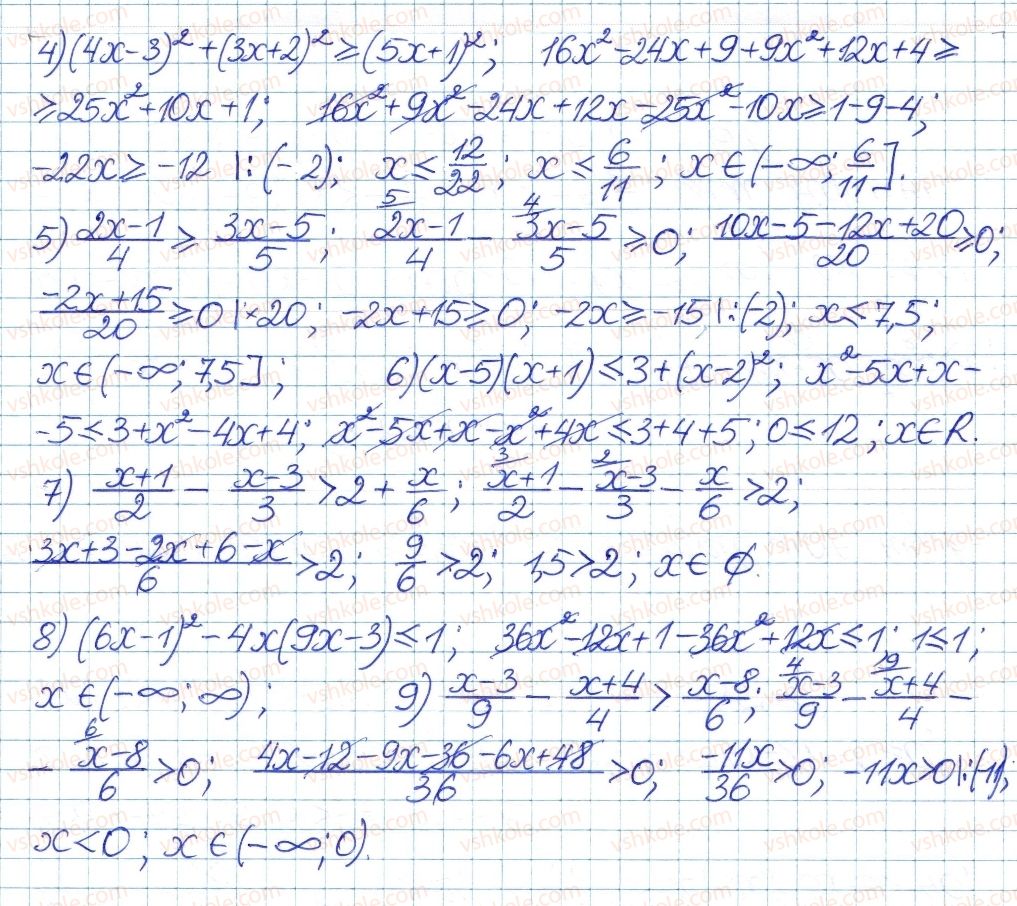 4) (4x-3)² + (3x+2)² ≥ (5x+1)²; 16x²-24x+9+9x²+12x+4 ≥
≥ 25x²+10x+1; 16x²+9x²-24x+12x-25x²-10x ≥ 1-9-4;
-22x ≥ -12 |:(-2); x ≤ 12/22; x ≤ 6/11; x ∈ (-∞; 6/11].
5) (2x-1)/4 ≥ (3x-5)/5; ⁵⁄(2x-1)/4 - ⁴⁄(3x-5)/5 ≥ 0; (10x-5-12x+20)/20 ≥ 0;
(-2x+15)/20 ≥ 0 |×20; -2x+15 ≥ 0; -2x ≥ -15 |:(-2); x ≤ 7,5;
x ∈ (-∞; 7,5]; 6) (x-5)(x+1) ≤ 3+(x-2)²; x²-5x+x-
-5 ≤ 3+x²-4x+4; x²-5x+x-x²+4x ≤ 3+4+5; 0 ≤ 12; x ∈ R.
7) (x+1)/2 - (x-3)/3 > 2 + x/6; ³⁄(x+1)/2 - ²⁄(x-3)/3 - x/6 > 2;
(3x+3-2x+6-x)/6 > 2; 9/6 > 2; 1,5 > 2; x ∈ ∅.
8) (6x-1)² - 4x(9x-3) ≤ 1; 36x²-12x+1-36x²+12x ≤ 1; 1 ≤ 1;
x ∈ (-∞; ∞); 9) (x-3)/9 - (x+4)/4 > (x-8)/6; ⁴⁄(x-3)/9 - ⁹⁄(x+4)/4 -
- ⁶⁄(x-8)/6 > 0; (4x-12-9x-36-6x+48)/36 > 0; -11x/36 > 0; -11x > 0 |:(-11);
x < 0; x ∈ (-∞; 0).
vshkole.com